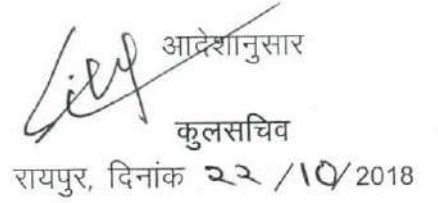 आदेशानुसार
कुलसचिव
रायपुर, दिनांक २२ /10/ 2018